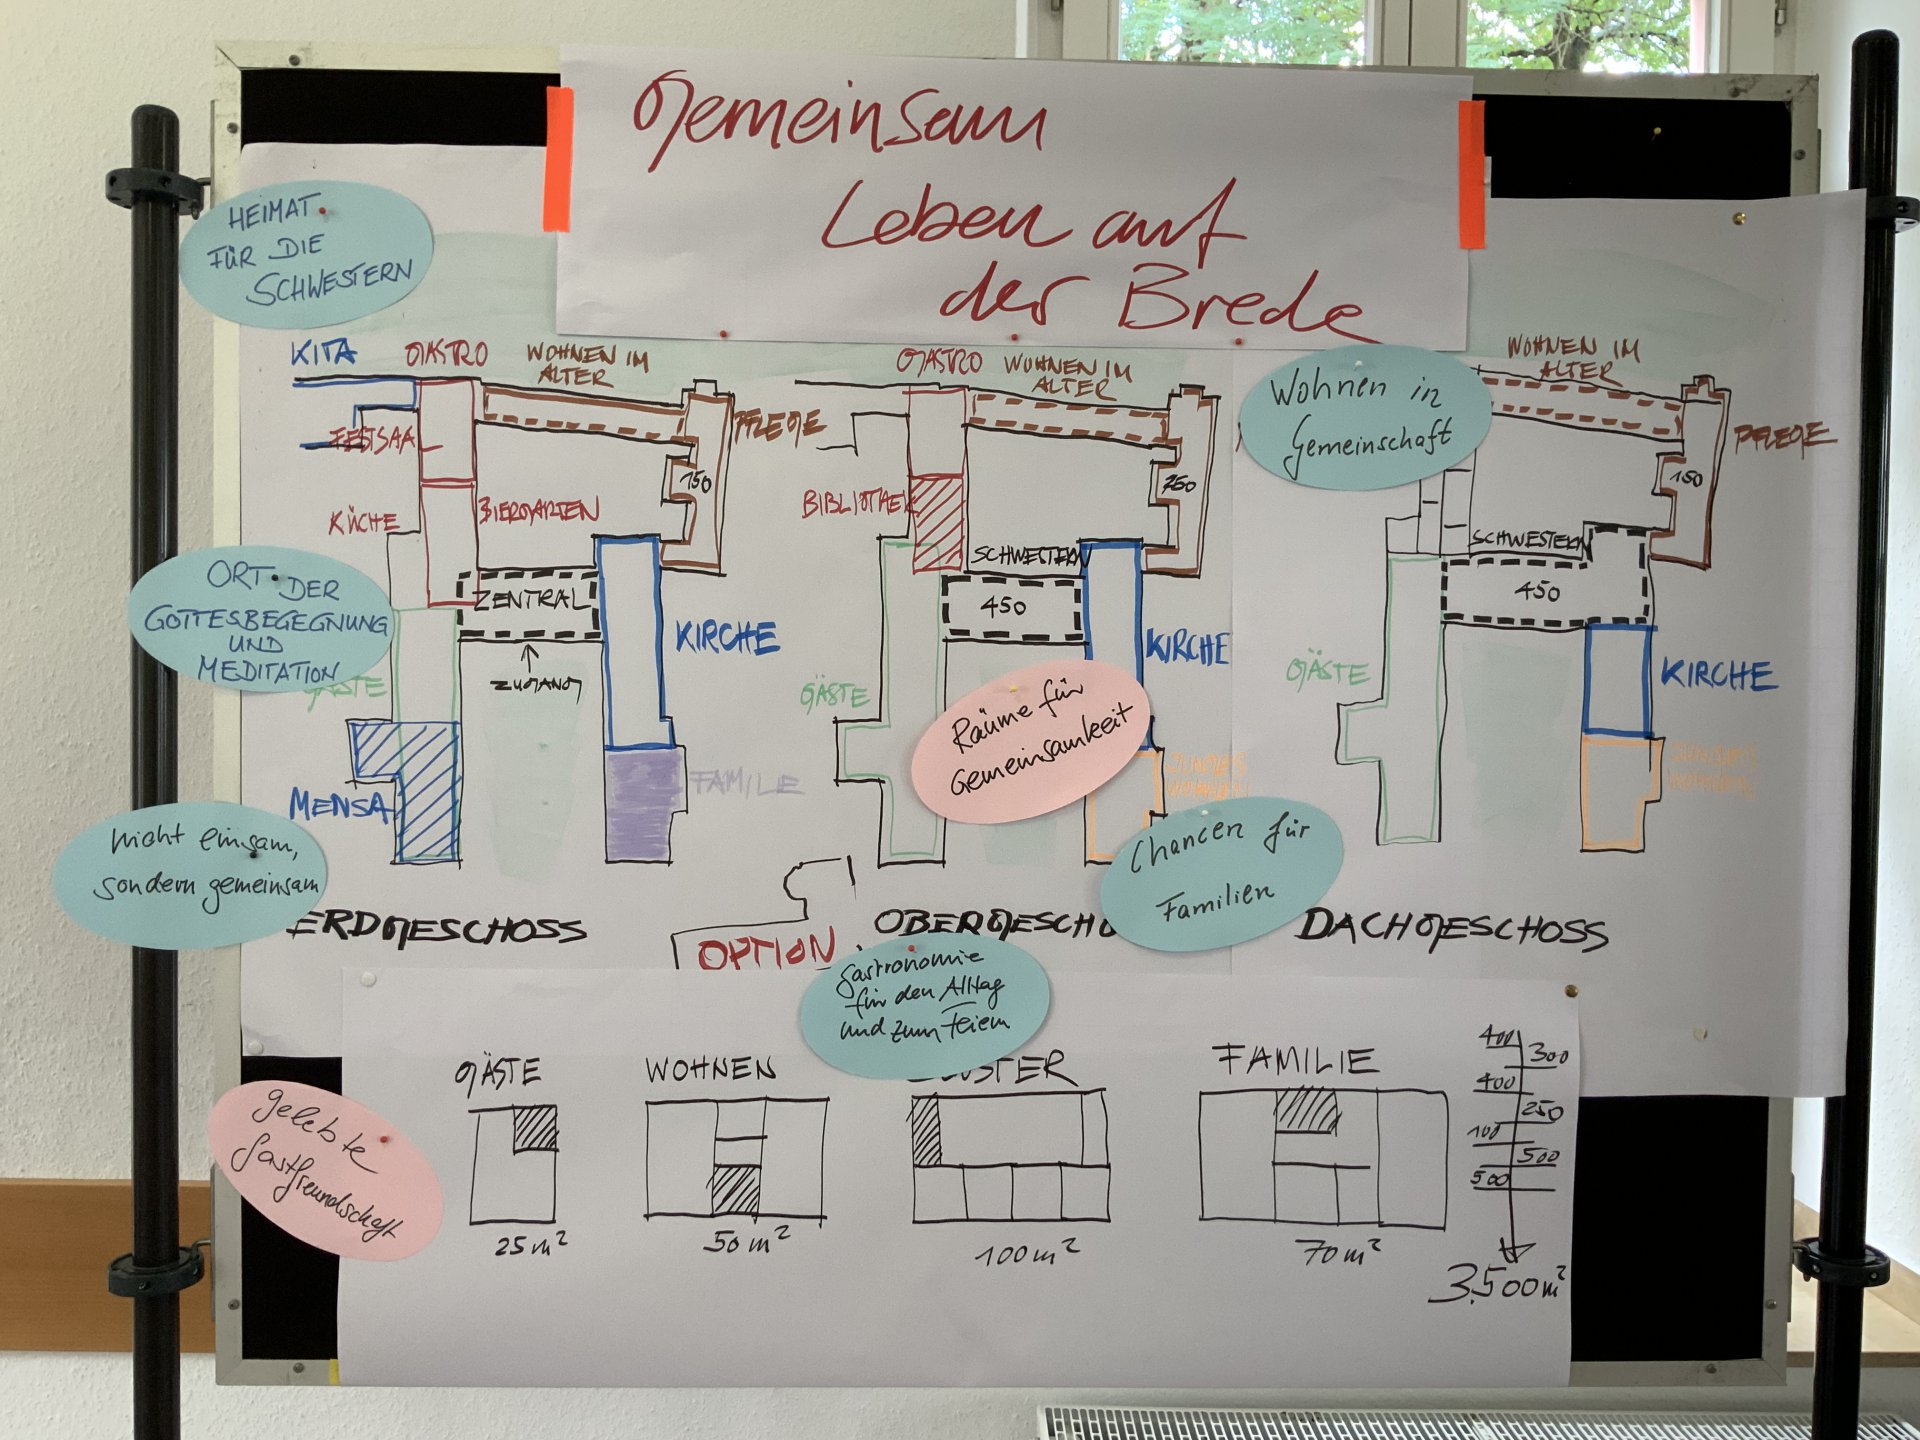 Gemeinsam
Leben auf
der Brede
HEIMAT
FÜR DIE
SCHWESTERN
KITA
GASTRO
WOHNEN IM
ALTER
FESTSAA
PFLEGE
150
KÜCHE
BIERGARTEN
ORT DER
GOTTESBEGEGNUNG
UND
MEDITATION
ZENTRAL
KIRCHE
ZUGANG
GÄSTE
MENSA
FAMILIE
nicht einsam,
sondern gemeinsam
ERDGESCHOSS
GASTRO
WOHNEN IM
ALTER
BIBLIOTHEK
SCHWESTERN
450
KIRCHE
GÄSTE
Räume für
Gemeinsamkeit
JUNGES
WOHNEN
Chancen für
Familien
OPTION
OBERGESCHO
Wohnen in
Gemeinschaft
WOHNEN IM
ALTER
PFLEGE
150
SCHWESTERN
450
GÄSTE
KIRCHE
JUNGES
WOHNEN
DACHGESCHOSS
Gastronomie
für den Alltag
und zum Feiern
gelebte
Gastfreundschaft
GÄSTE
25 m²
WOHNEN
50 m²
USTER
100 m²
FAMILIE
70 m²
400
300
400
250
100
500
500
3.500 m²